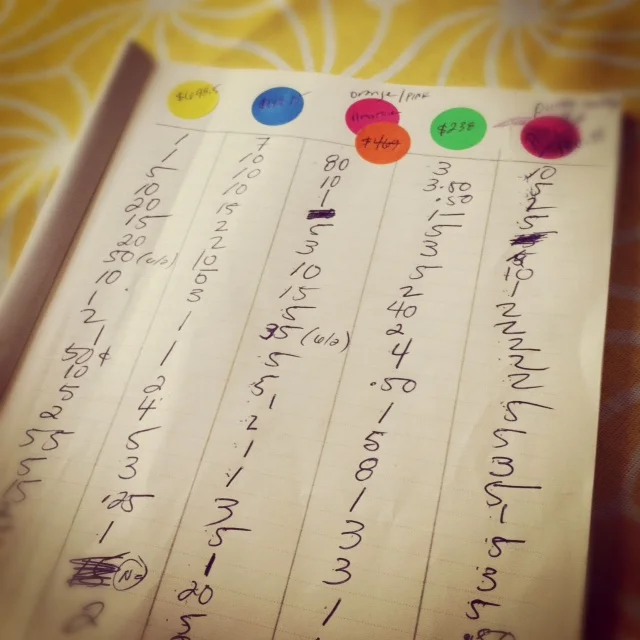 orange/pink
$464
$234
1
1
5
10
20
15
20
50 (w/o)
10
1
2
1
50¢
10
5
2
5 5
5
5
7
10
10
10
15
2
2
10
3
1
1
2
4
5
3
.25
1
2
80
10
1
5
3
10
15
5
35 (w/o)
5
5
1
2
1
1
3
5
1
20
5
3
3.50
.50
5
3
5
2
40
2
4
.50
1
5
8
1
3
3
1
10
1
2
2
2
2
5
5
3
5
1
5
3
5